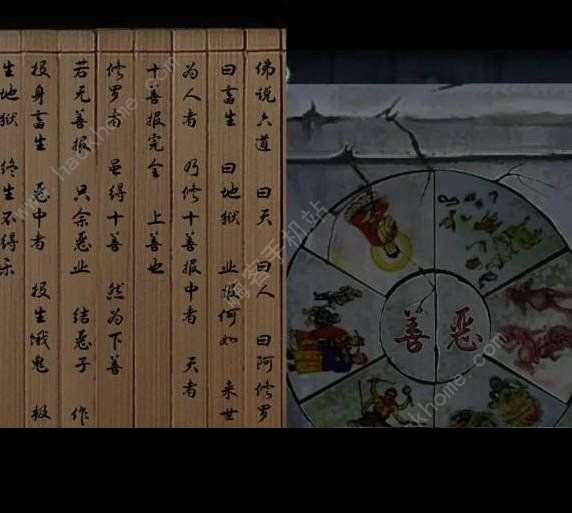 佛说六道 曰天 曰人 曰阿修罗
曰畜生 曰地狱 业报何如 来世
为人者 乃修十善报中者 天者
十善报完全 上善也
修罗者 虽得十善 然为下善
若无善报 只余恶业 结恶子 作
报身畜生 恶中者 报生饿鬼 极
生地狱 终生不得乐
善 恶
嗨客手机站